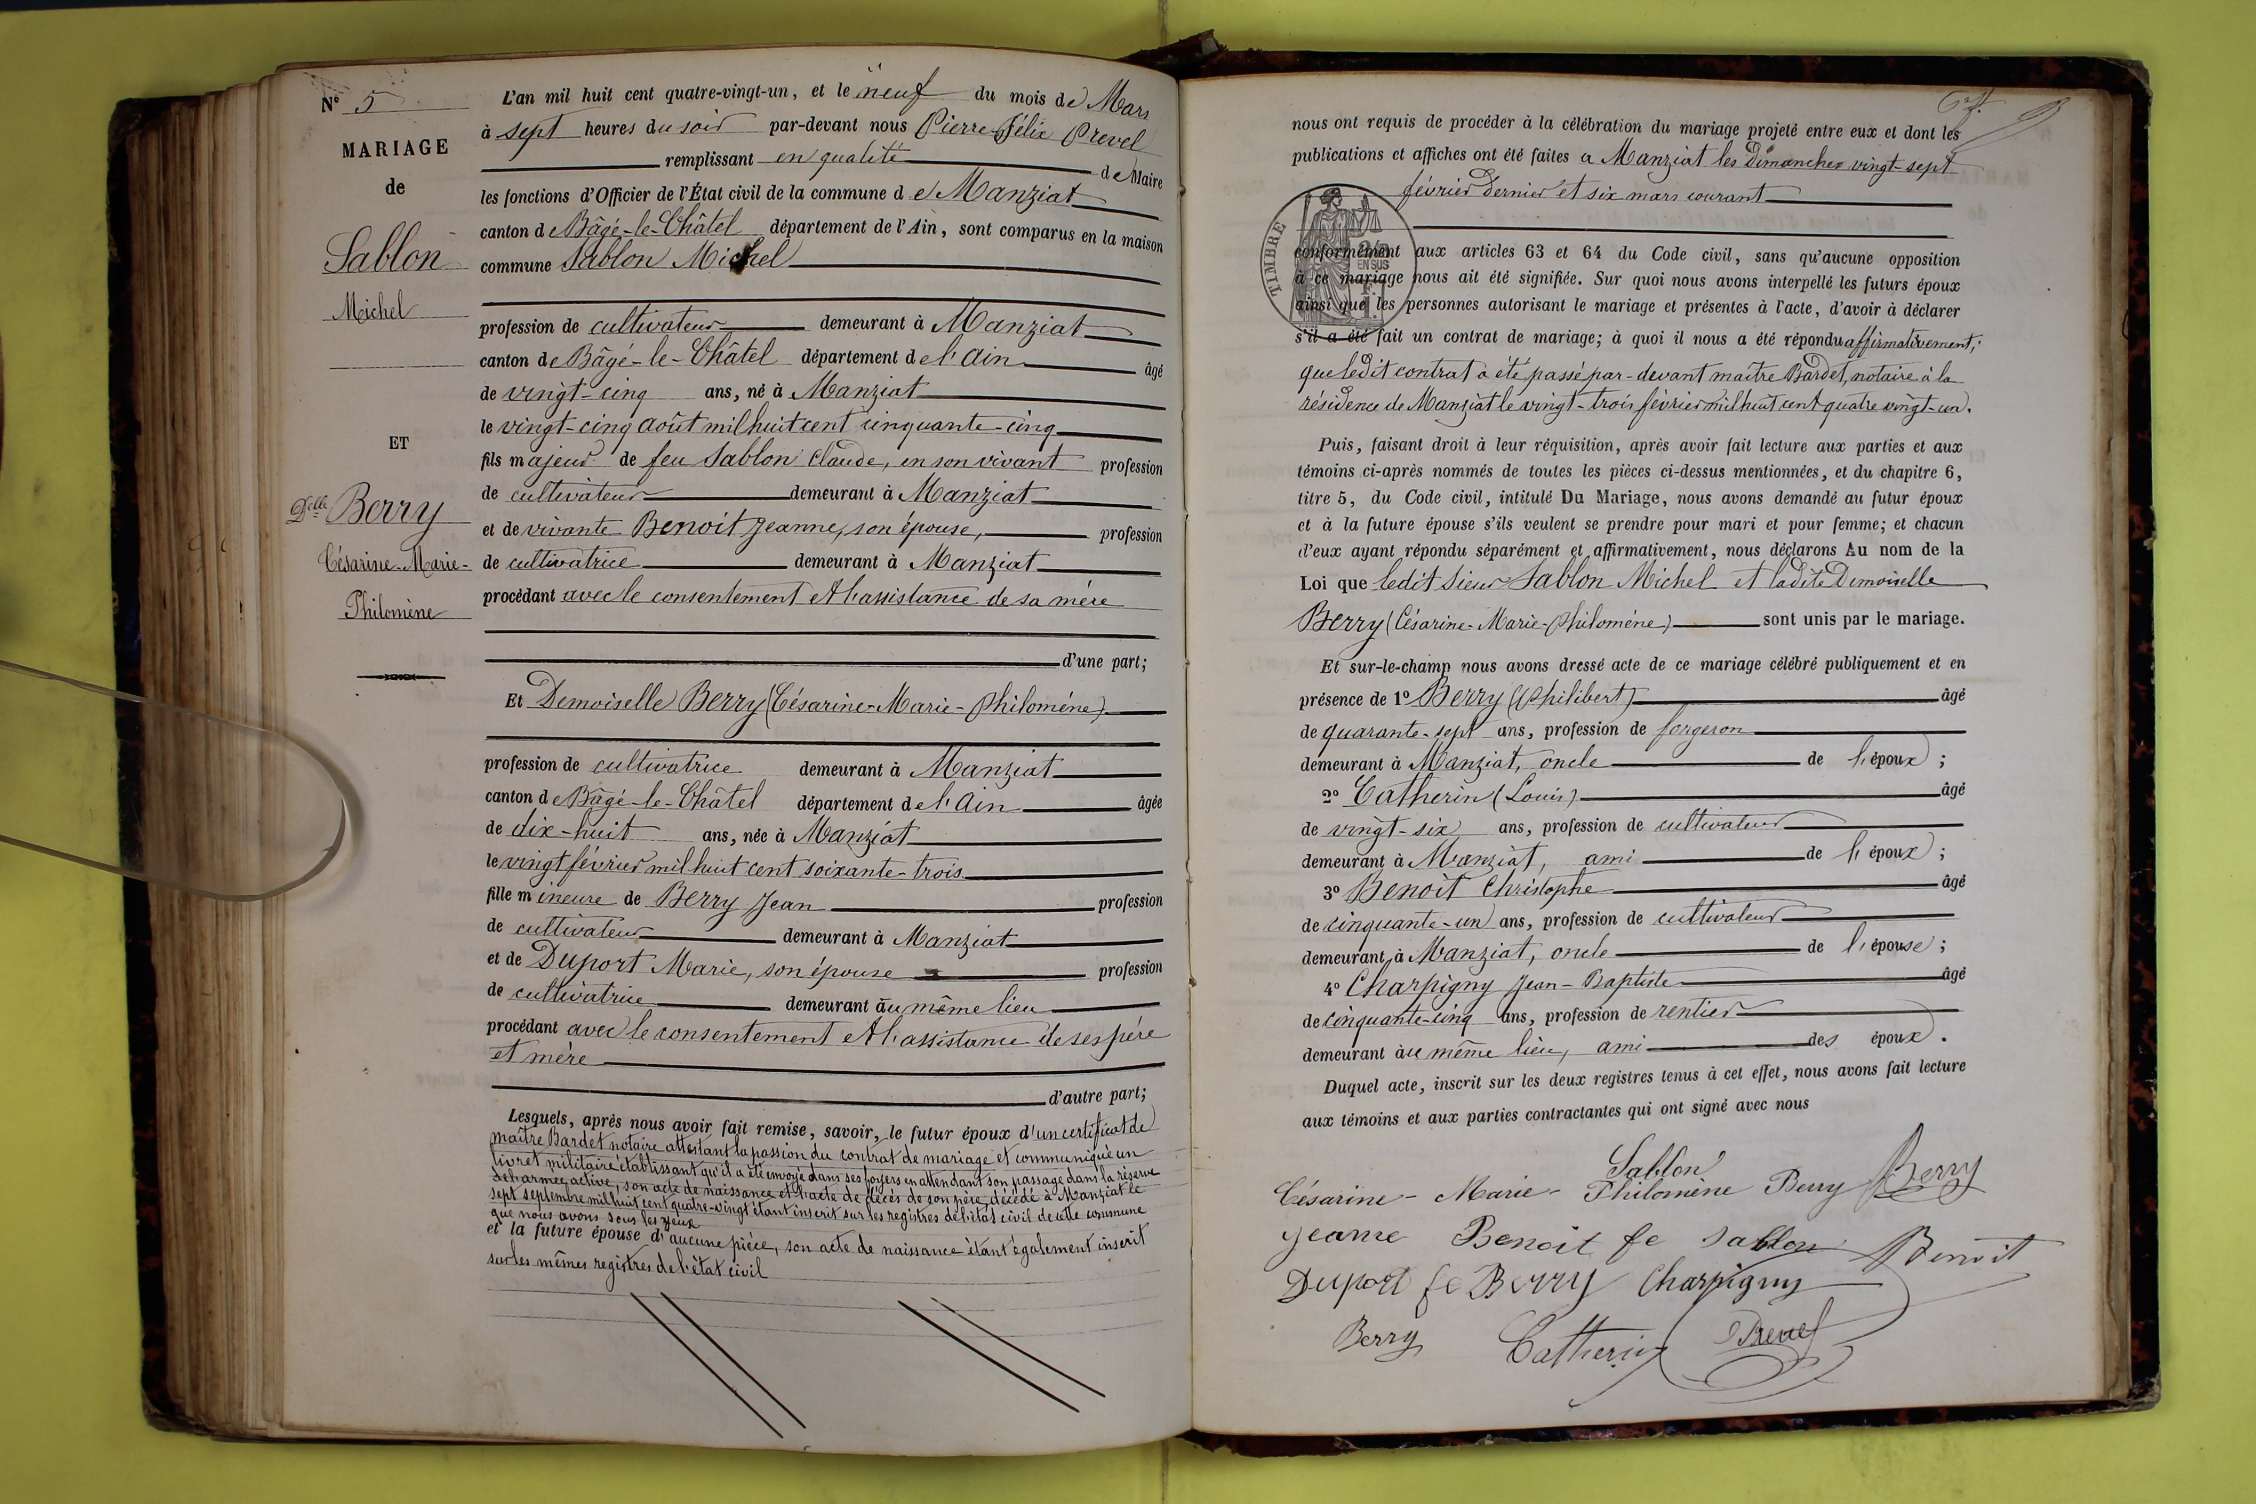 N° 5
MARIAGE
de
Sablon
Michel
ET
Delle Berry
Césarine-Marie-
Philomène
L'an mil huit cent quatre-vingt-un, et le neuf du mois de Mars
à sept heures du soir par-devant nous Pierre Félix Prevel
remplissant en qualité de Maire
les fonctions d'Officier de l'État civil de la commune de Manziat
canton de Bâgé-le-Châtel département de l'Ain, sont comparus en la maison
commune Sablon Michel
profession de cultivateur demeurant à Manziat
canton de Bâgé-le-Châtel département de l'Ain âgé
de vingt-cinq ans, né à Manziat
le vingt-cinq août mil huit cent cinquante-cinq
fils majeur de feu Sablon Claude, en son vivant profession
de cultivateur demeurant à Manziat
et de vivante Benoit Jeanne, son épouse, profession
de cultivatrice demeurant à Manziat
procédant avec le consentement et l'assistance de sa mère
d'une part;
Et Demoiselle Berry (Césarine-Marie-Philoméne)
profession de cultivatrice demeurant à Manziat
canton de Bâgé-le-Châtel département de l'Ain âgée
de dix-huit ans, née à Manziat
le vingt février mil huit cent soixante-trois
fille mineure de Berry Jean profession
de cultivateur demeurant à Manziat
et de Duport Marie, son épouse profession
de cultivatrice demeurant au même lieu
procédant avec le consentement et l'assistance de ses père
et mère
d'autre part;
Lesquels, après nous avoir fait remise, savoir, le futur époux d'un certificat de
maître Bardet notaire attestant la passion du contrat de mariage et communiqué un
livret militaire établissant qu'il a été envoyé dans ses foyers en attendant son passage dans la réserve
de l'armée active, son acte de naissance et l'acte de décès de son père décédé à Manziat le
sept septembre mil huit cent quatre-vingt étant inscrit sur les registres de l'état civil de cette commune
que nous avons sous les yeux
et la future épouse d'aucune pièce, son acte de naissance étant également inscrit
sur les mêmes registres de l'état civil
nous ont requis de procéder à la célébration du mariage projeté entre eux et dont les
publications et affiches ont été faites a Manziat les Dimanches vingt-sept
février dernier et six mars courant
TIMBRE
EN SUS
conformément aux articles 63 et 64 du Code civil, sans qu'aucune opposition
à ce mariage nous ait été signifiée. Sur quoi nous avons interpellé les futurs époux
ainsi que les personnes autorisant le mariage et présentes à l'acte, d'avoir à déclarer
s'il a été fait un contrat de mariage; à quoi il nous a été répondu affirmativement;
que ledit contrat a été passé par-devant maître Bardet, notaire à la
résidence de Manziat le vingt-trois février mil huit cent quatre vingt-un.
Puis, faisant droit à leur réquisition, après avoir fait lecture aux parties et aux
témoins ci-après nommés de toutes les pièces ci-dessus mentionnées, et du chapitre 6,
titre 5, du Code civil, intitulé Du Mariage, nous avons demandé au futur époux
et à la future épouse s'ils veulent se prendre pour mari et pour femme; et chacun
d'eux ayant répondu séparément et affirmativement, nous déclarons Au nom de la
Loi que ledit sieur Sablon Michel et ladite Demoiselle
Berry (Césarine-Marie-Philoméne) sont unis par le mariage.
Et sur-le-champ nous avons dressé acte de ce mariage célébré publiquement et en
présence de 1° Berry (Philibert) âgé
de quarante-sept ans, profession de forgeron
demeurant à Manziat, oncle de l'époux;
2° Catherin (Louis) âgé
de vingt-six ans, profession de cultivateur
demeurant à Manziat, ami de l'époux;
3° Benoit Christophe âgé
de cinquante-un ans, profession de cultivateur
demeurant à Manziat, oncle de l'épouse;
4° Charpigny Jean-Baptiste âgé
de cinquante-cinq ans, profession de rentier
demeurant au même lieu, ami des époux.
Duquel acte, inscrit sur les deux registres tenus à cet effet, nous avons fait lecture
aux témoins et aux parties contractantes qui ont signé avec nous
Sablon
Césarine-Marie-Philomène Berry Berry
Jeanne Benoit fe Sablon Benoit
Duport fe Berry Charpigny
Berry Catherin Prevel